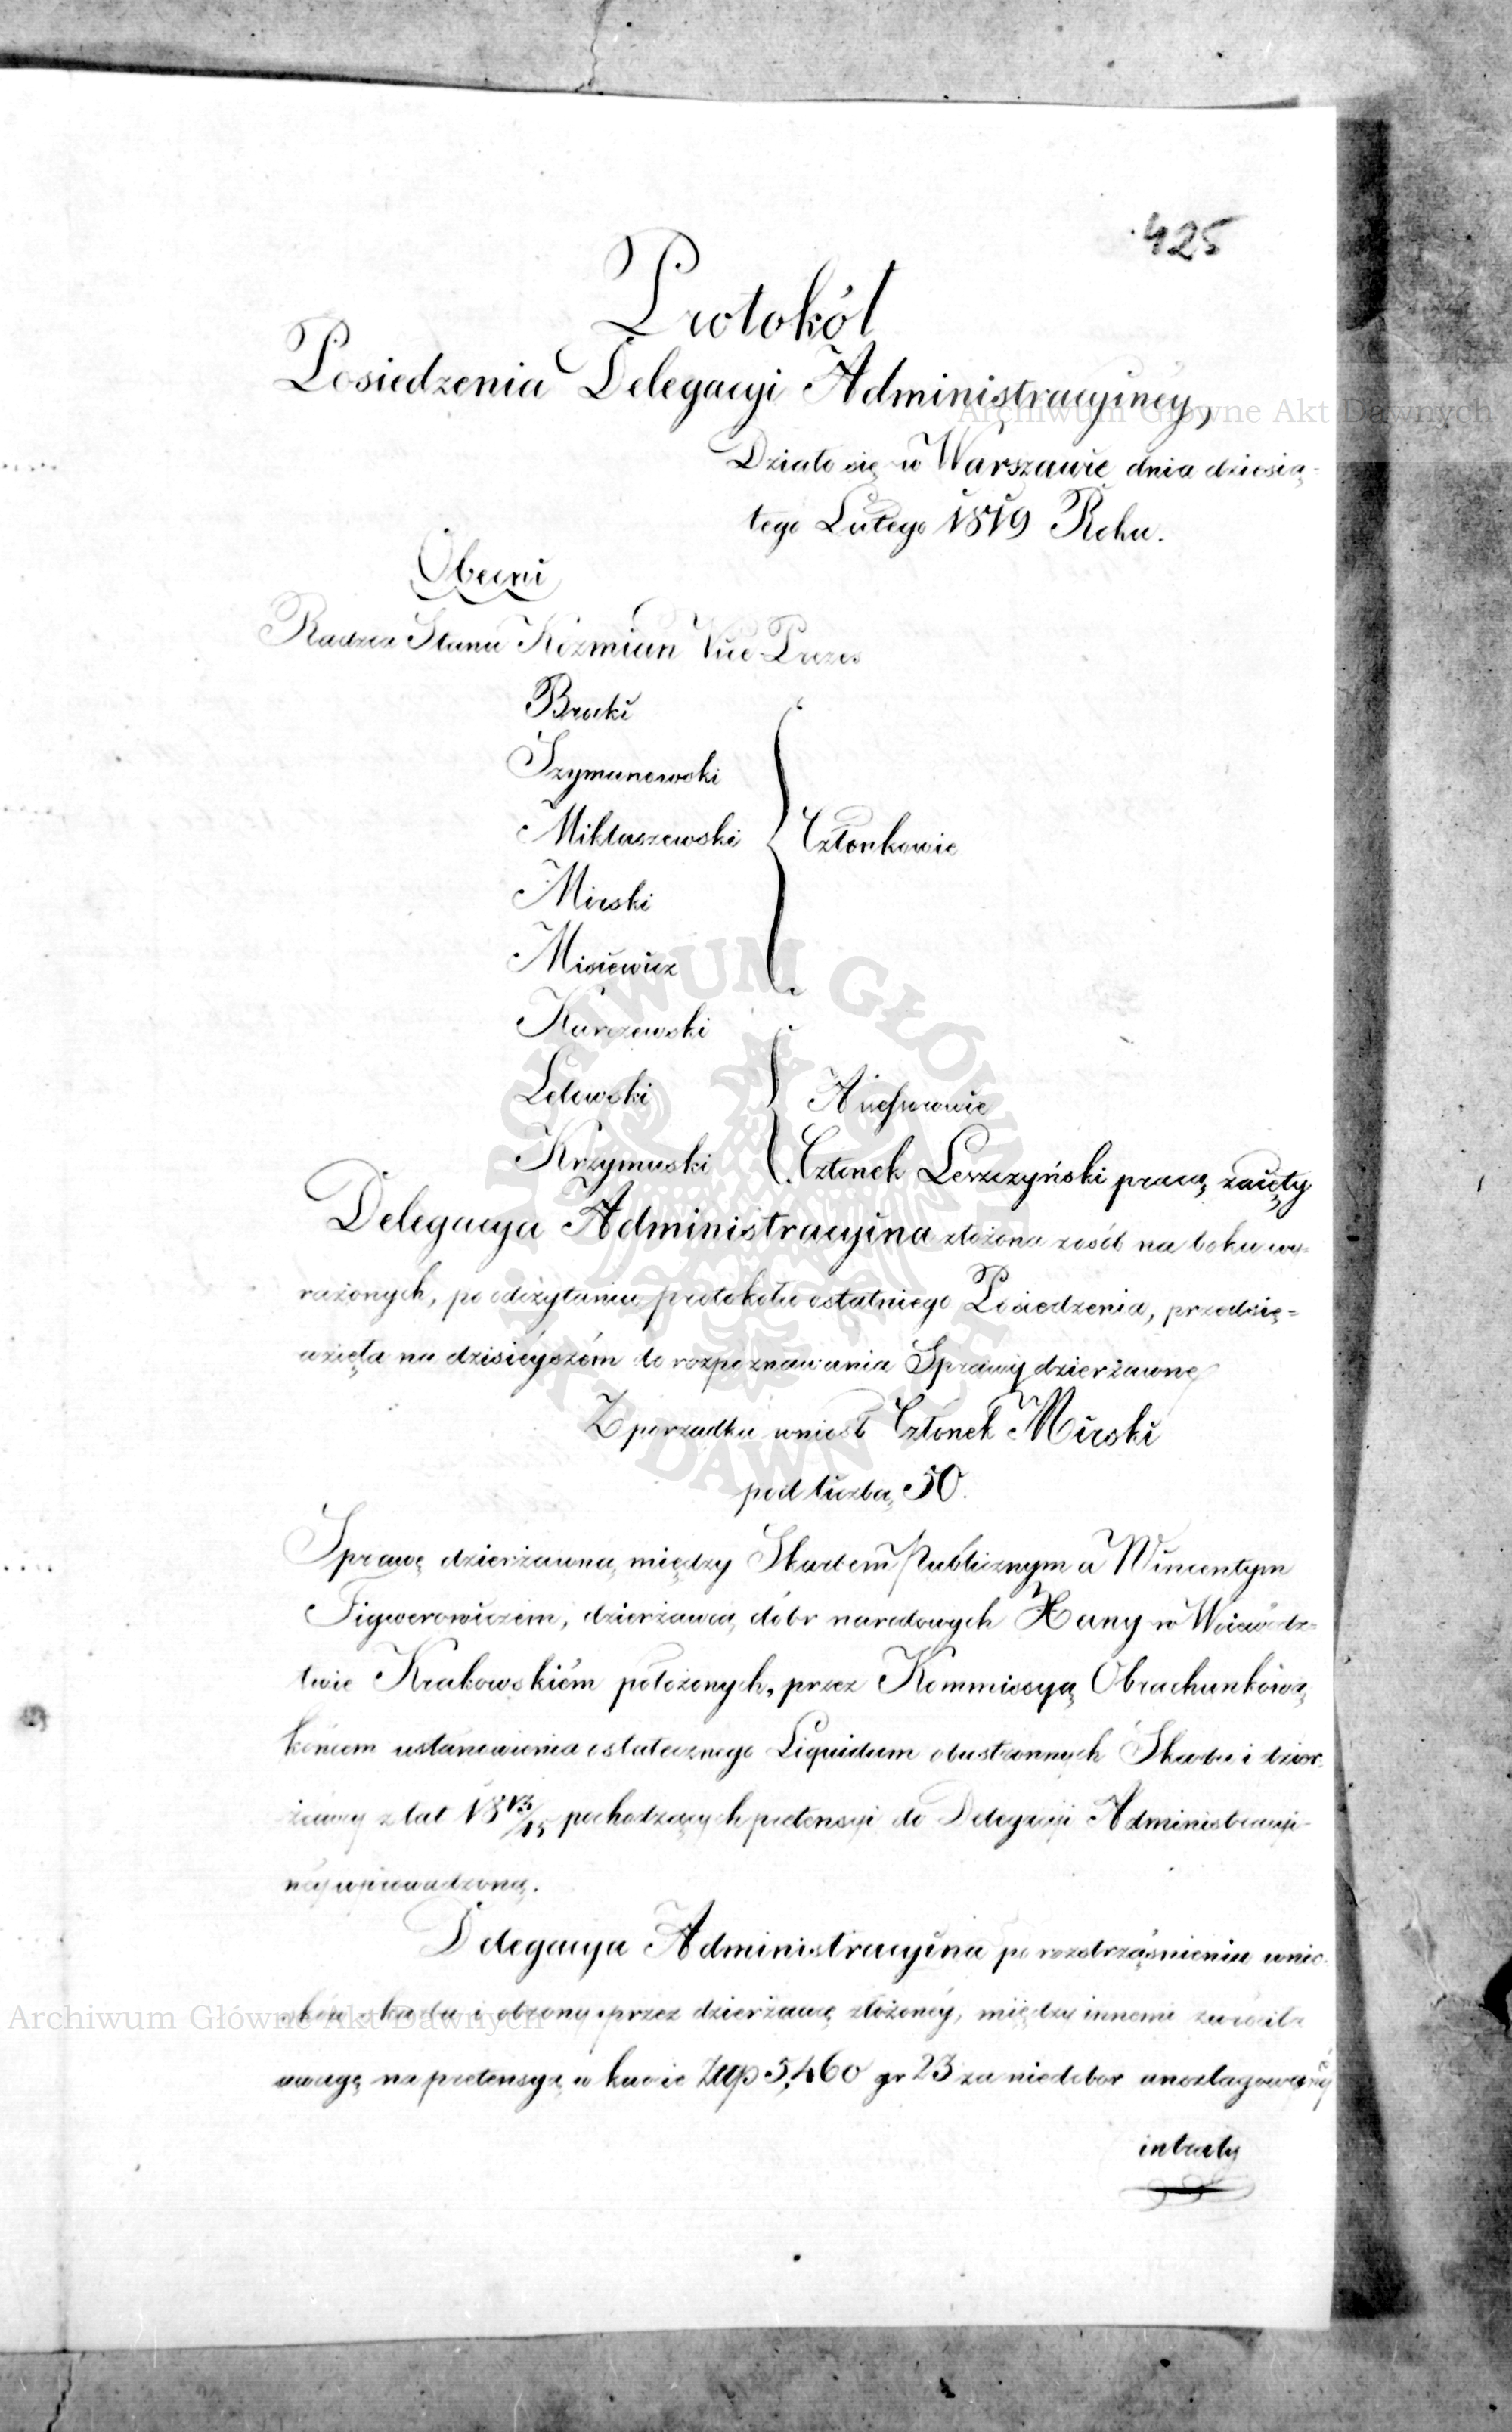 425
Protokół
Posiedzenia Delegacyi Administracyiney,
Działo się w Warszawie dnia dziesią-
tego Lutego 1819 Roku.
Obecni
Radzca Stanu Kozmian Vice Prezes
Bracki
Szymanowski
Mikłaszewski Członkowie
Mirski
Misiewicz
Karczewski
Lelewski Assessorowie
Krzymuski Członek Leszczyński pracą zaięty
Delegacya Administracyina złożona zosób na boku wy-
rażonych, po odczytaniu protokołu ostatniego Posiedzenia, przedsię-
wzięła na dzisieyszém do rozpoznawania Sprawy dzierżawne
Z porządku wniosł Członek Mirski
pod liczbą 50.
Sprawę dzierżawną między Skarbem Publicznym a Wincentym
Figwerowiczem, dzierżawcą dóbr narodowych w Woiewódz-
twie Krakowskiém położonych, przez Kommissyą Obrachunkową,
końcem ustanowienia ostatecznego Liquidum obustronnych Skarbu i dzier-
żawcy z lat 1813/15 pochodzących pretensyi do Delegacyi Administracyi-
ney wprowadzoną.
Delegacya Administracyina po roztrząśnieniu wnio-
sków skarbu i obrony przez dzierżawcę złożoney, między innemi zwróciła
uwagę na pretensyą w kwocie Złp 5,460 gr 23 za niedobor anszlagowaney
intraty
Archiwum Główne Akt Dawnych
Archiwum Główne Akt Dawnych
ARCHIWUM GŁÓWNE AKT DAWNYCH